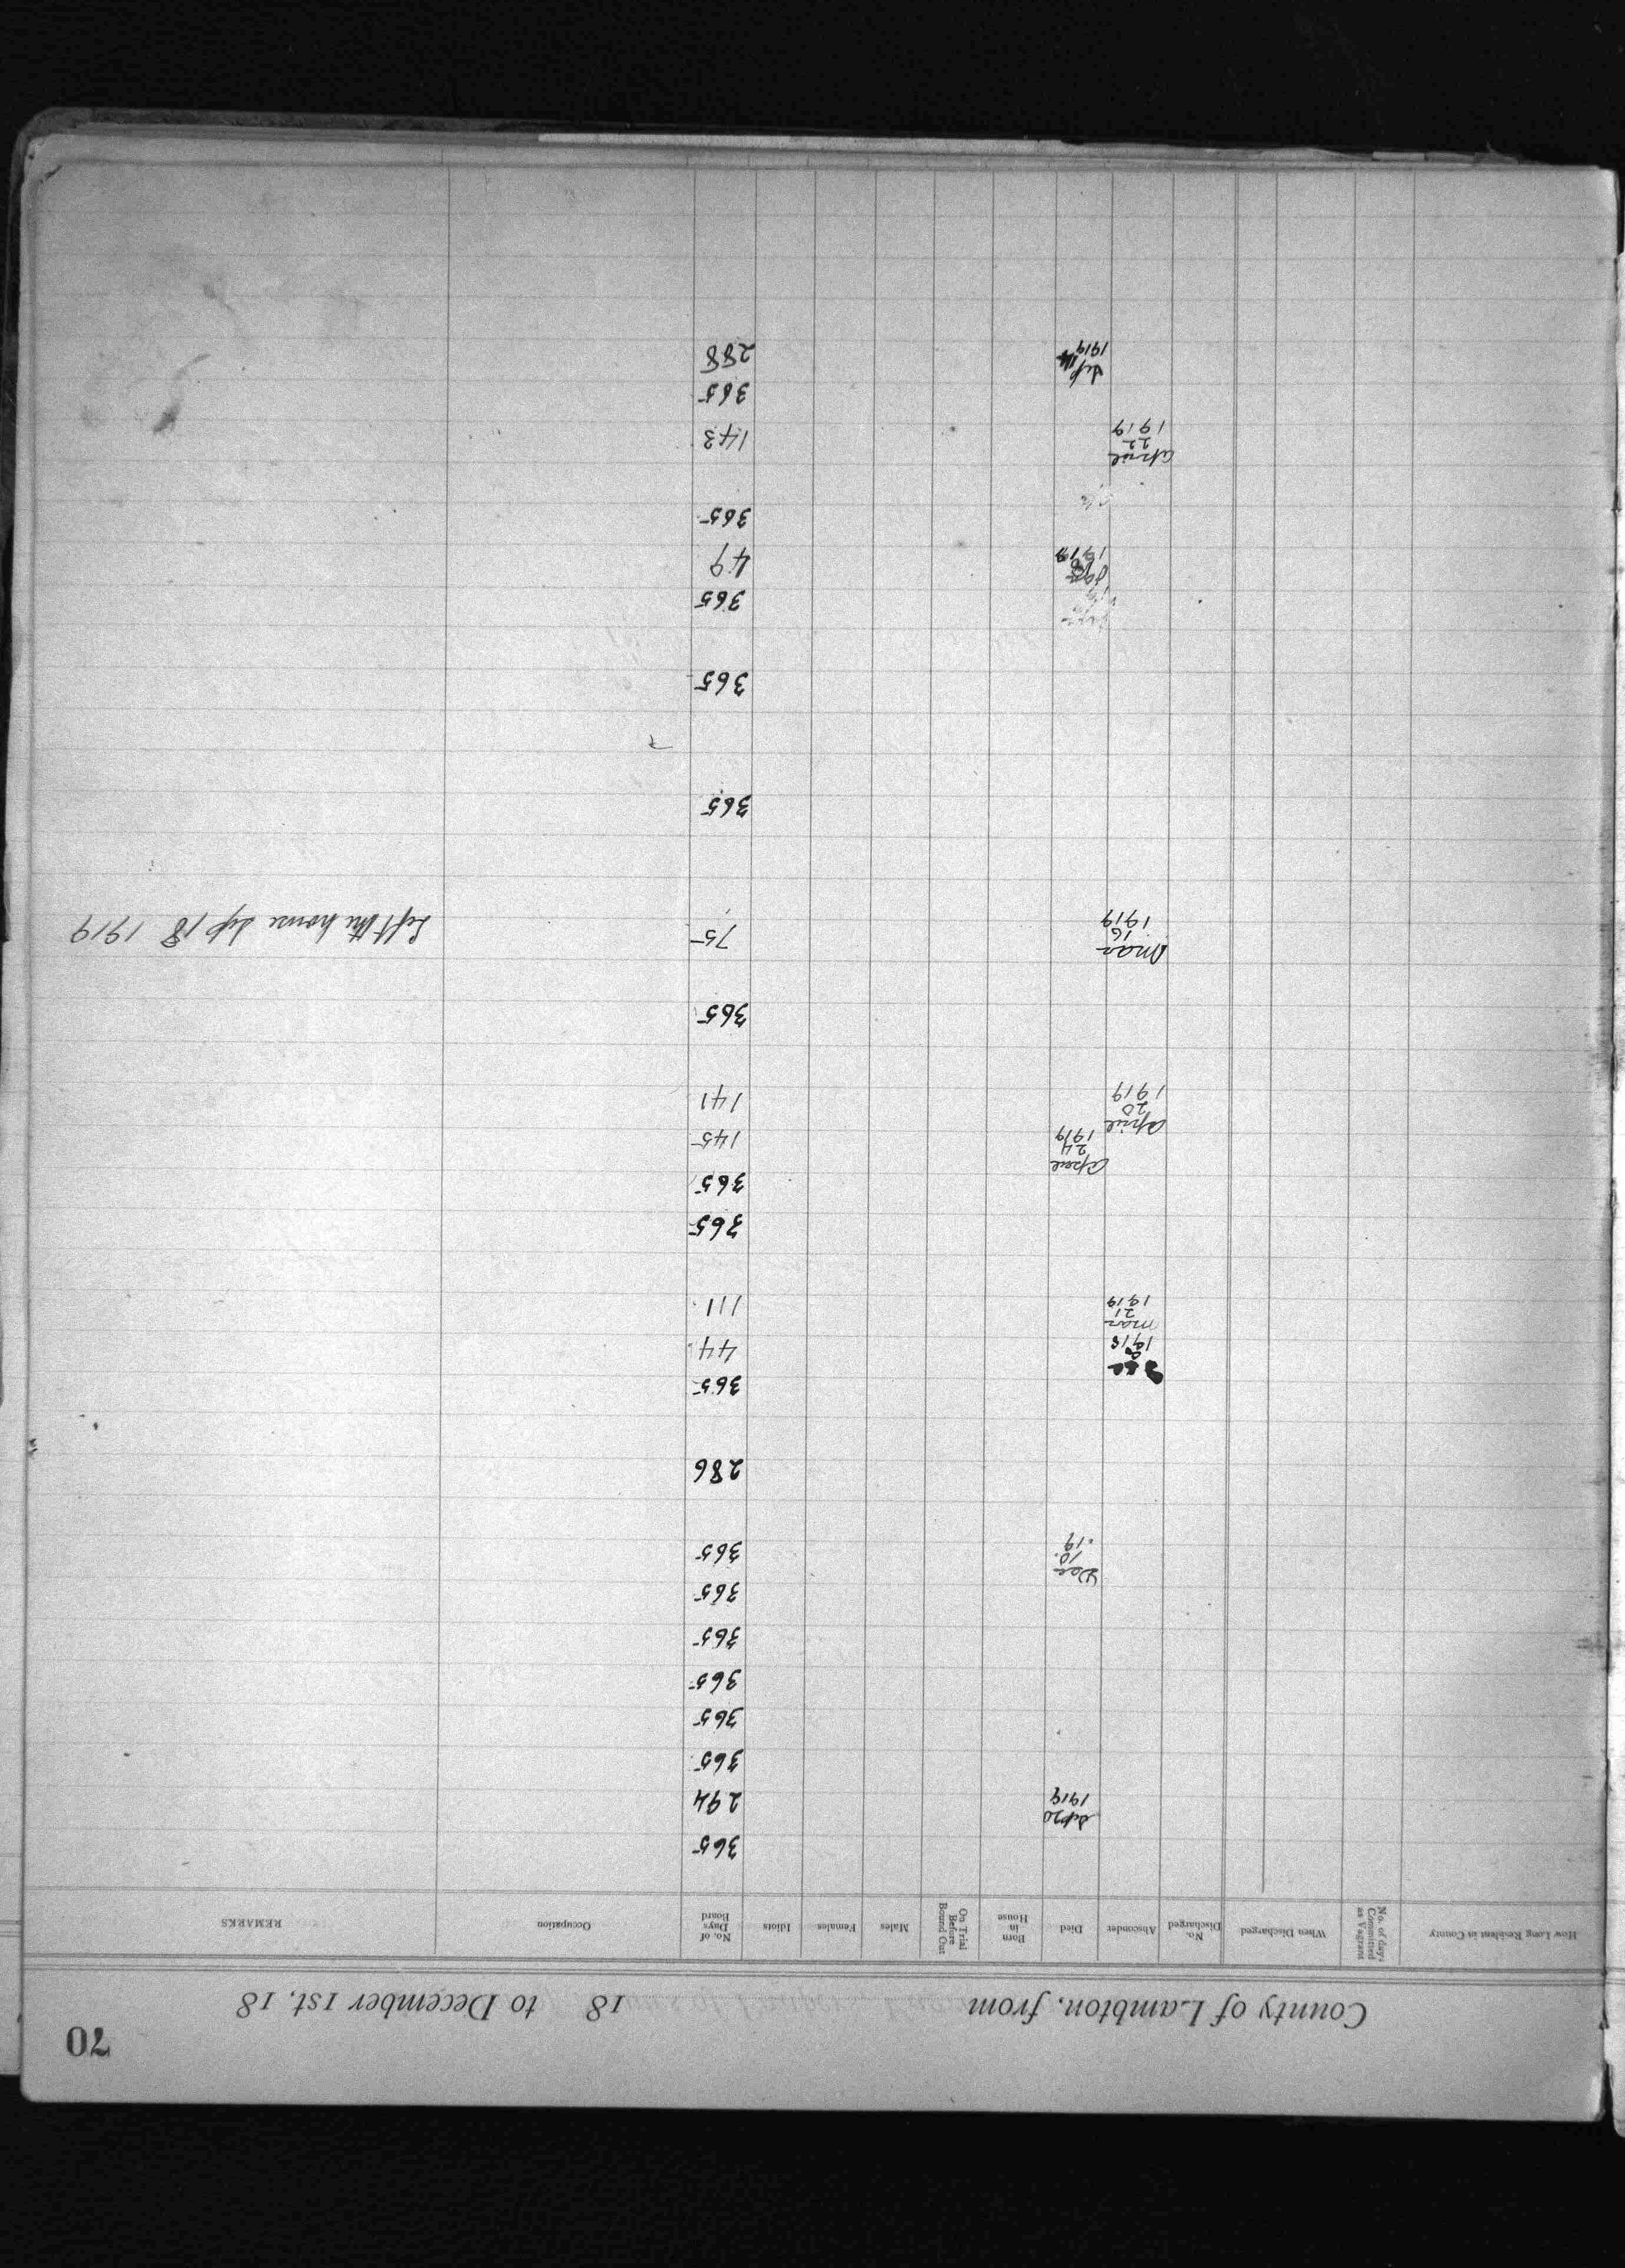 70
County of Lambton, from 18 to December 1st, 18
How Long Resident in County
No. of days Committed as Vagrant
When Discharged
No. Discharged
Absconder
Died
Born in House
On Trial Before Bound Out
Males
Females
Idiots
No. of Days Board
Occupation
REMARKS
365
Sep 20 1919 294
365
365
365
365
365
365
Dec 10 .19 365
286
365
1918 44
Mar 21 1919 111
365
365
April 24 1919 145
April 20 1919 141
365
Mar 16 1919 75 Left the house Sep 18 1919
365
365
365
1919 49
365
April 22 1919 143
365
Sep 14 1919 288